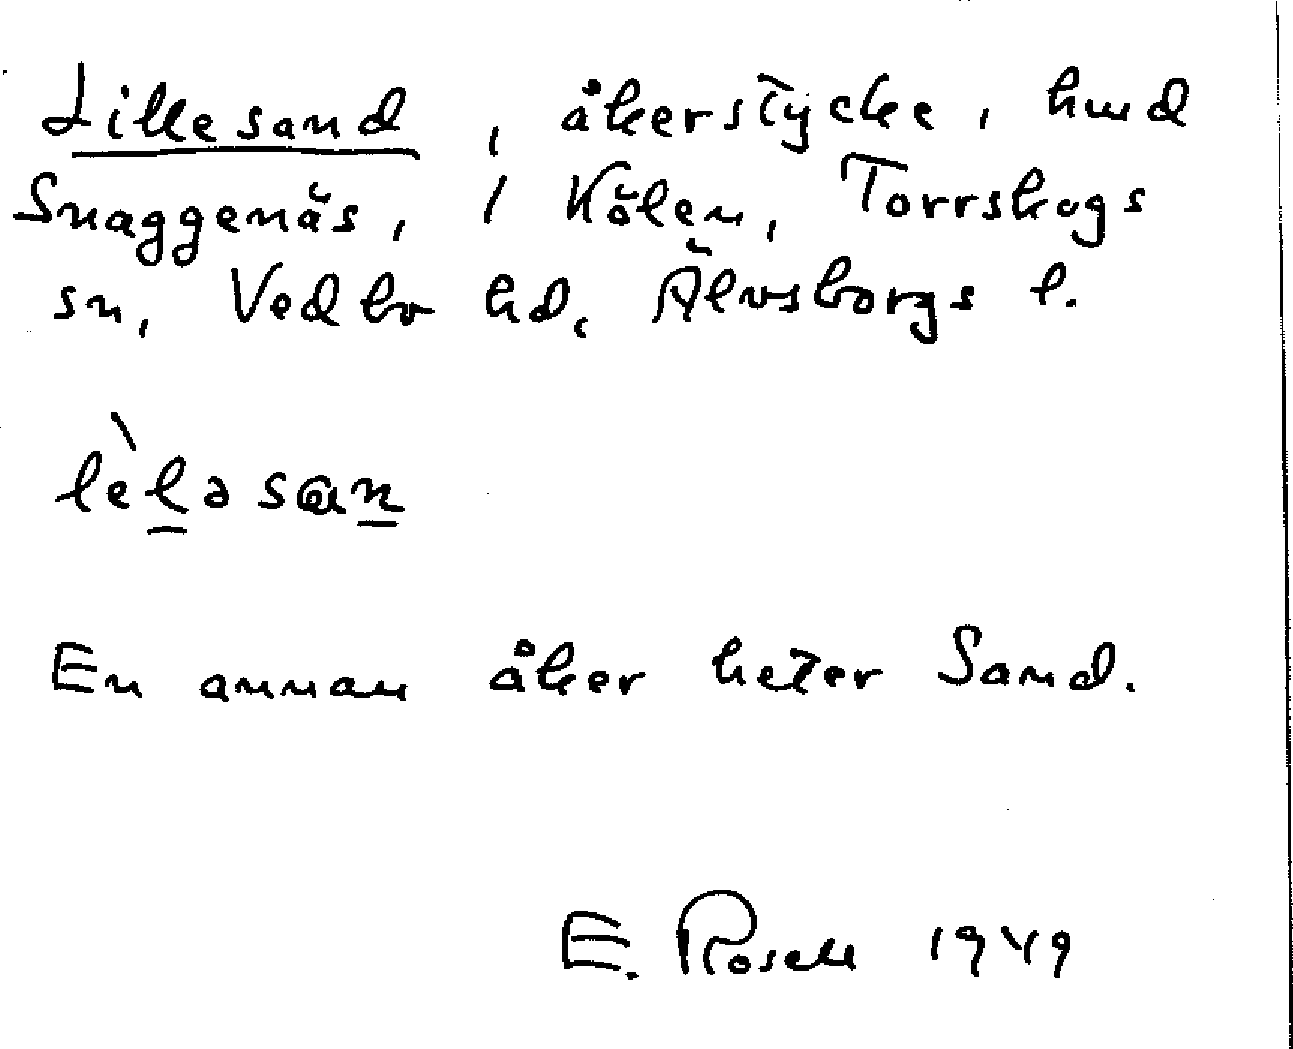 Lillesand, åkerstycke, hmd
Snaggenäs, i Kölen, Torrskogs
sn, Vedbo hd, Älvsborgs l.
lèləsan
En annan åker heter Sand.
E. Rosell 1949